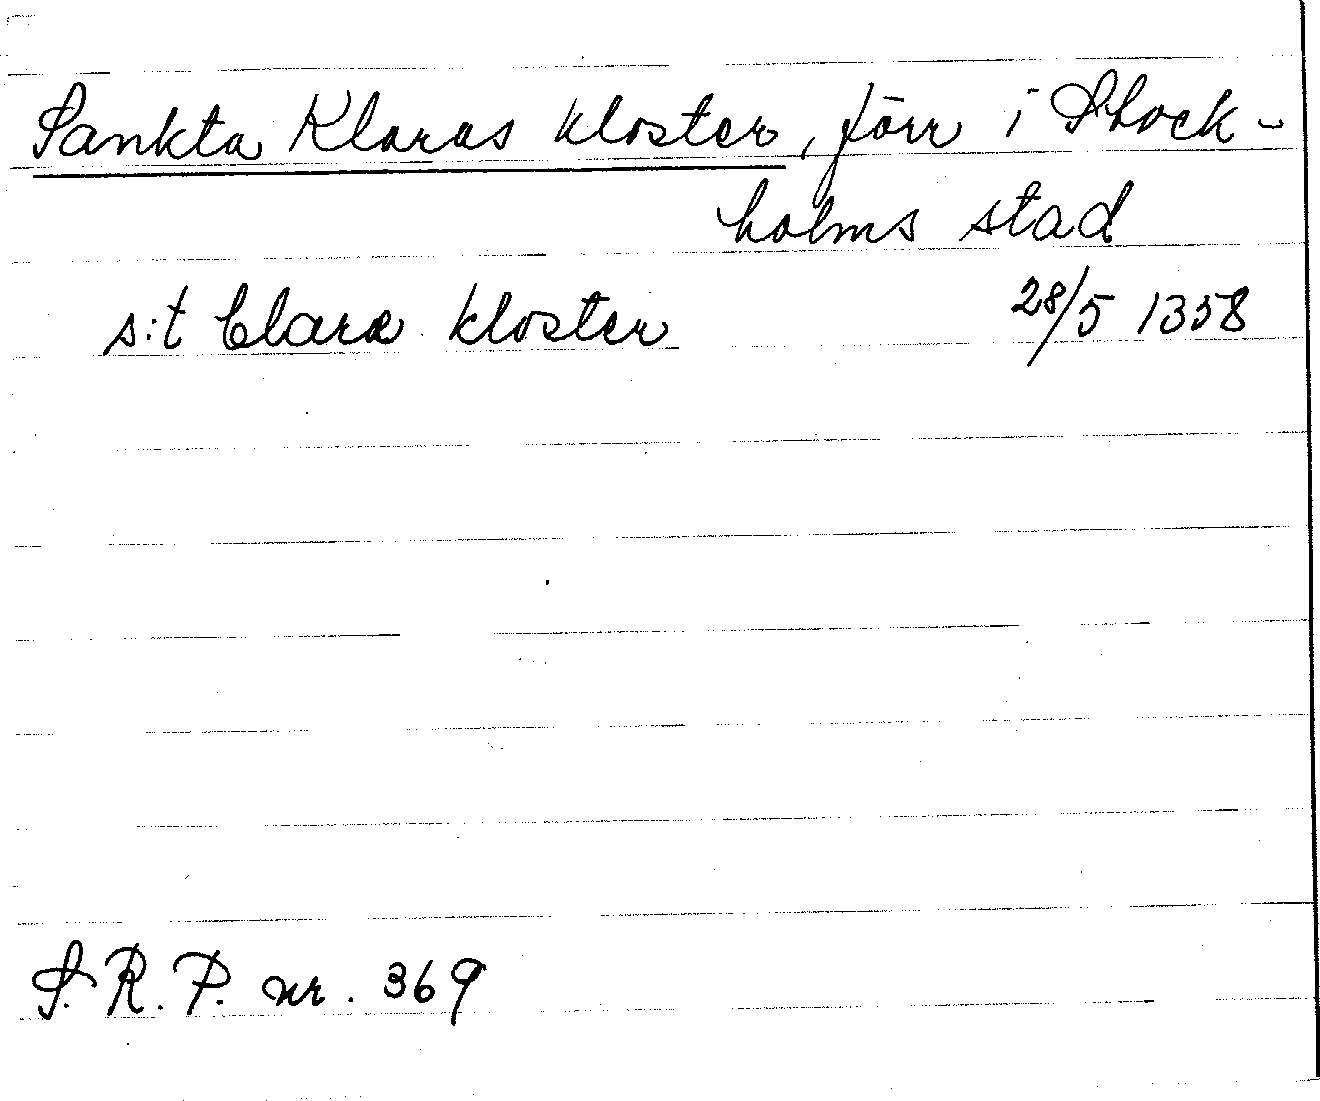 Sankta Klaras kloster, förr i Stock-
holms stad
s:t Claræ kloster 28/5 1358
S.R.P. nr. 369